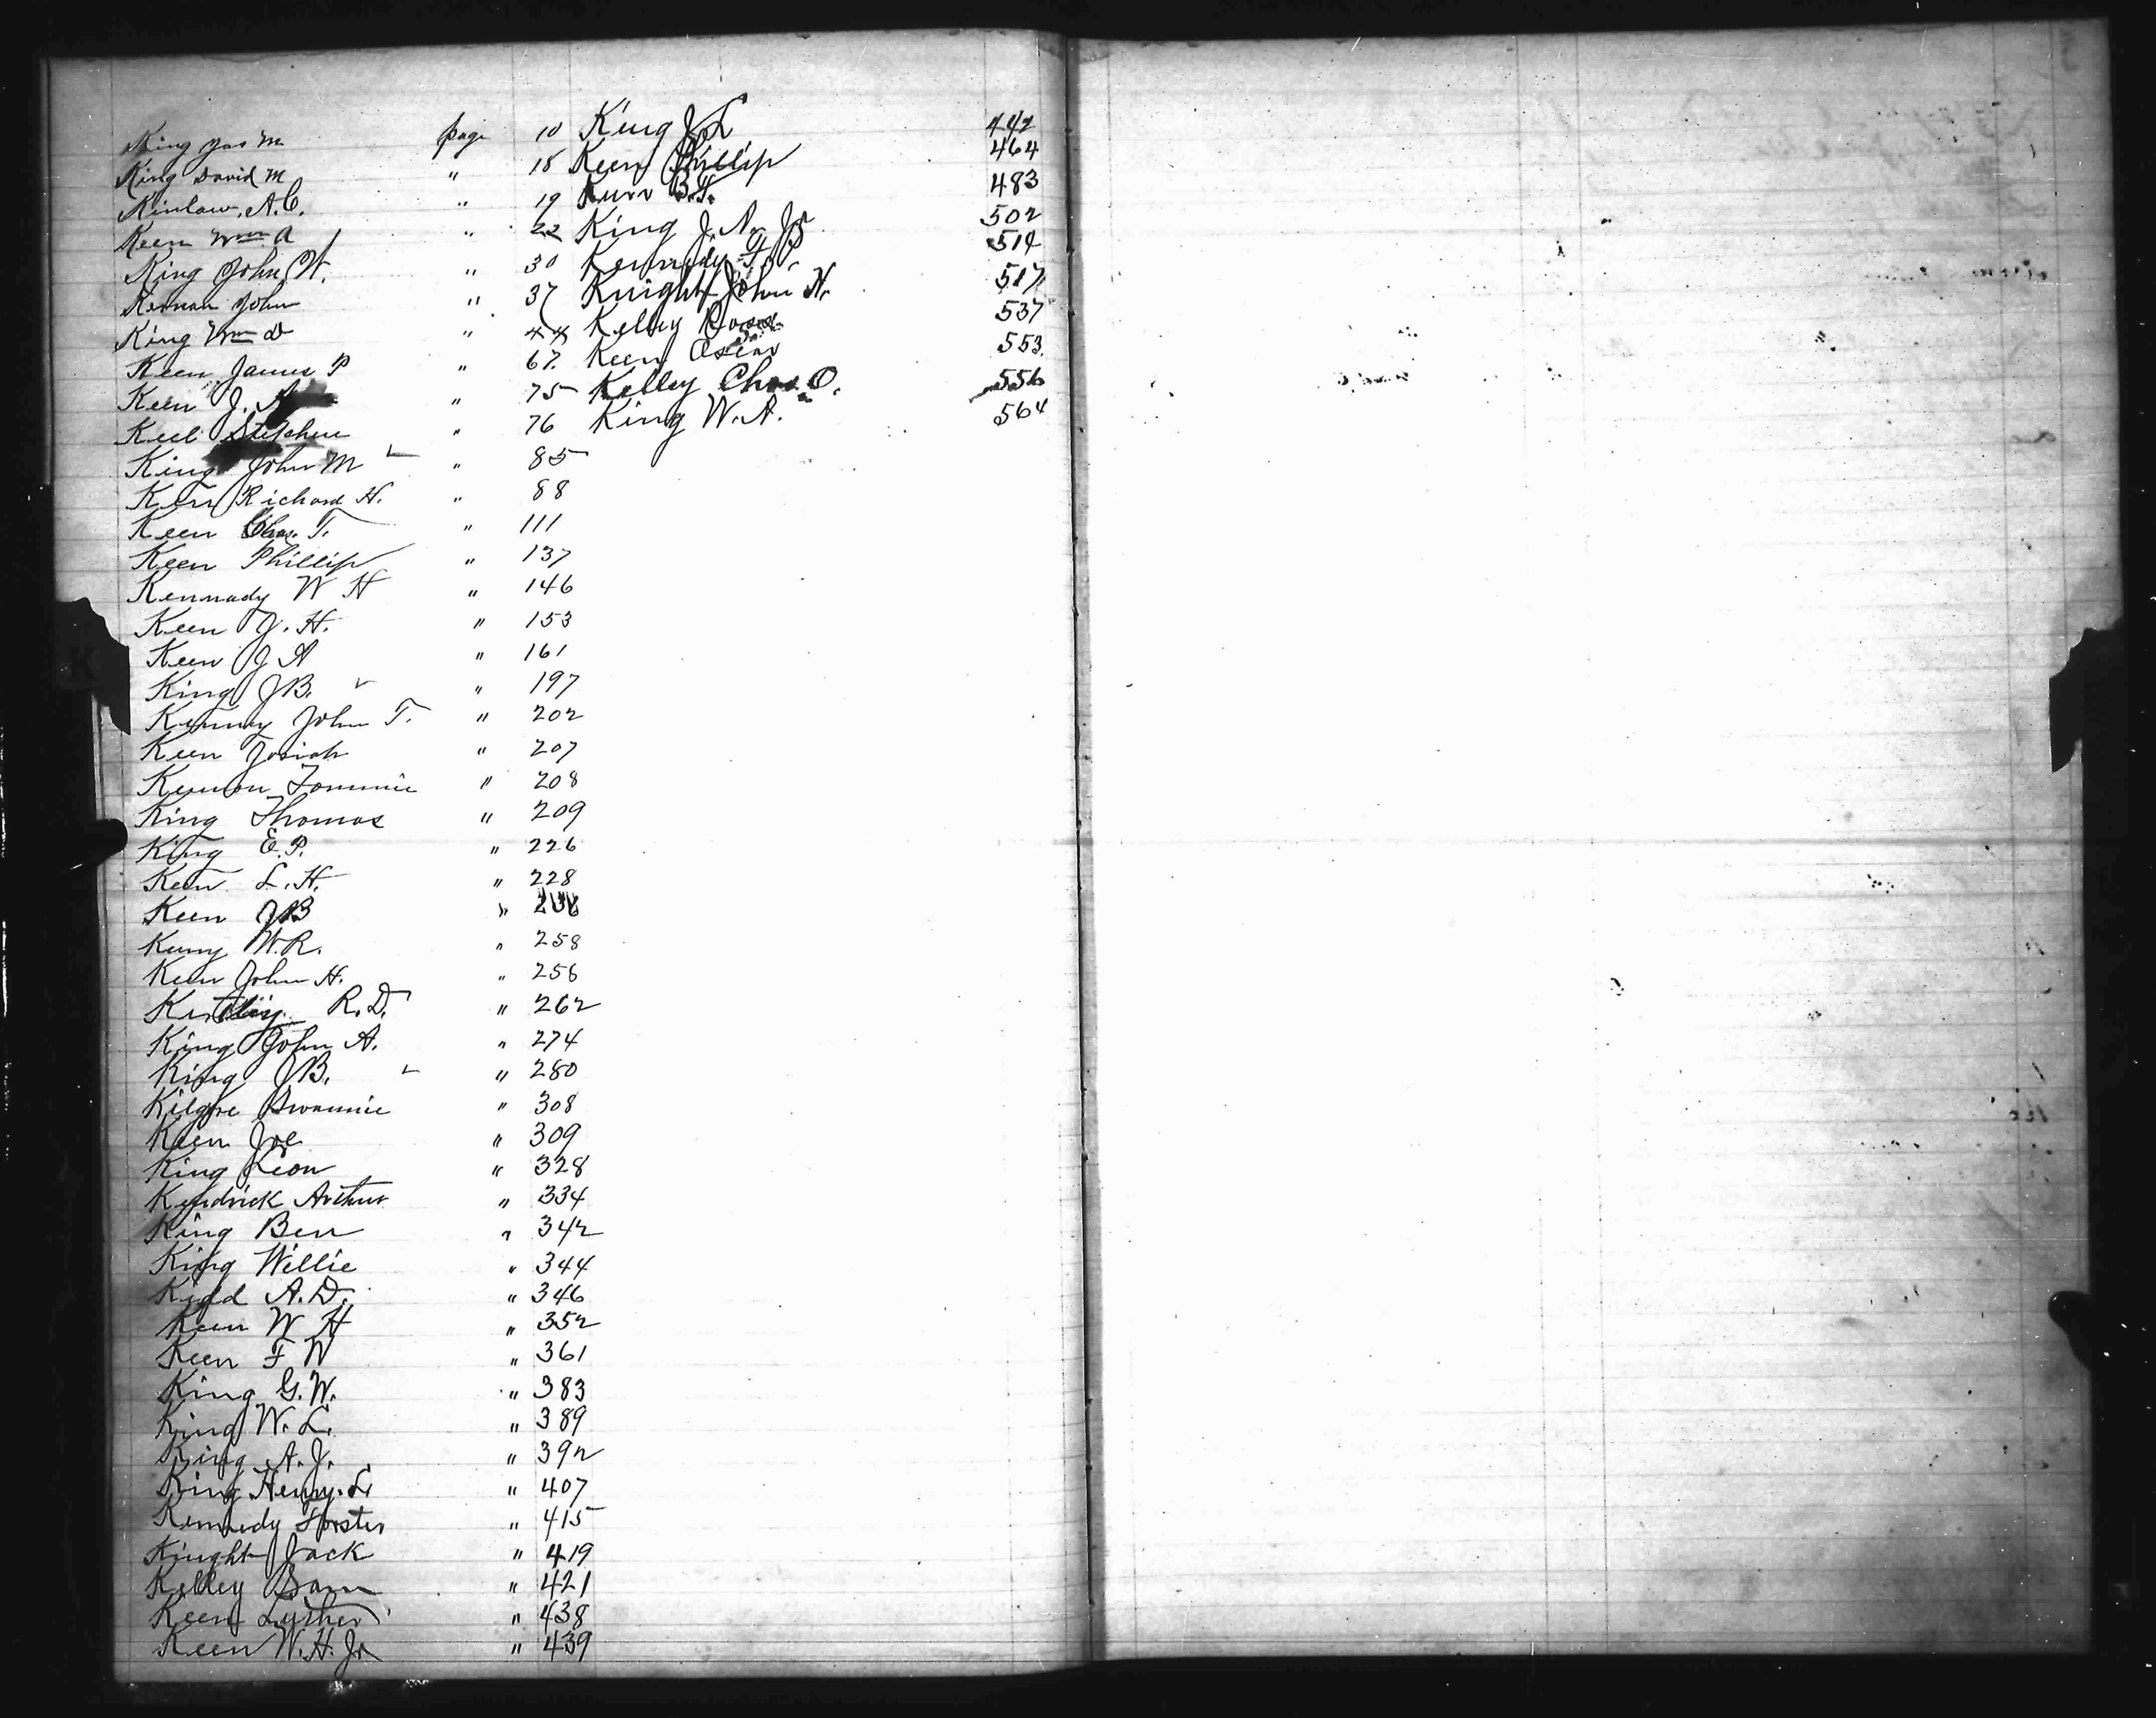 King Jas M page 10
King David M " 18
Kinlaw, A.C. " 19
Keen Wm A " 22
King John W. " 30
Kernan John " 37
King Wm D " 44
Keen James P " 67
Keen J. A " 75
Keel Stephen " 76
King John M " 85
Kerr Richard H. " 88
Keen Chas. T. " 111
Keen Phillip " 137
Kennady W H " 146
Keen J. H. " 153
Keen J A " 161
King J B. " 197
Kenney John T. " 202
Keen Josiah " 207
Tommie " 208
King Thomas " 209
King E. P. " 226
Keen L. H. " 228
Keen J B "
W. R. " 258
Keen John H. " 256
R. D. " 262
King John A. " 274
King J B. " 280
Kilgore " 308
Keen Joe " 309
King Leon " 328
Kendrick Arthur " 334
King Ben " 342
King Willie " 344
Kidd A. D. " 346
Keen W H " 352
Keen F W " 361
King G. W. " 383
King W. L. " 389
King A. J. " 392
King Henry L " 407
Kennedy Forster " 415
Kinght Jack " 419
Kelley Sam " 421
Keen Luther " 438
Keen W. H. Jr " 439
King J. L 442
Keen Phillip 464
B. F. 483
King J. A. Jr 502
Kennedy F. P. 514
Knight John N. 517
Kelley 537
Keen Oscar 553.
Kelley Chas. O. 556
King W. A. 564
K